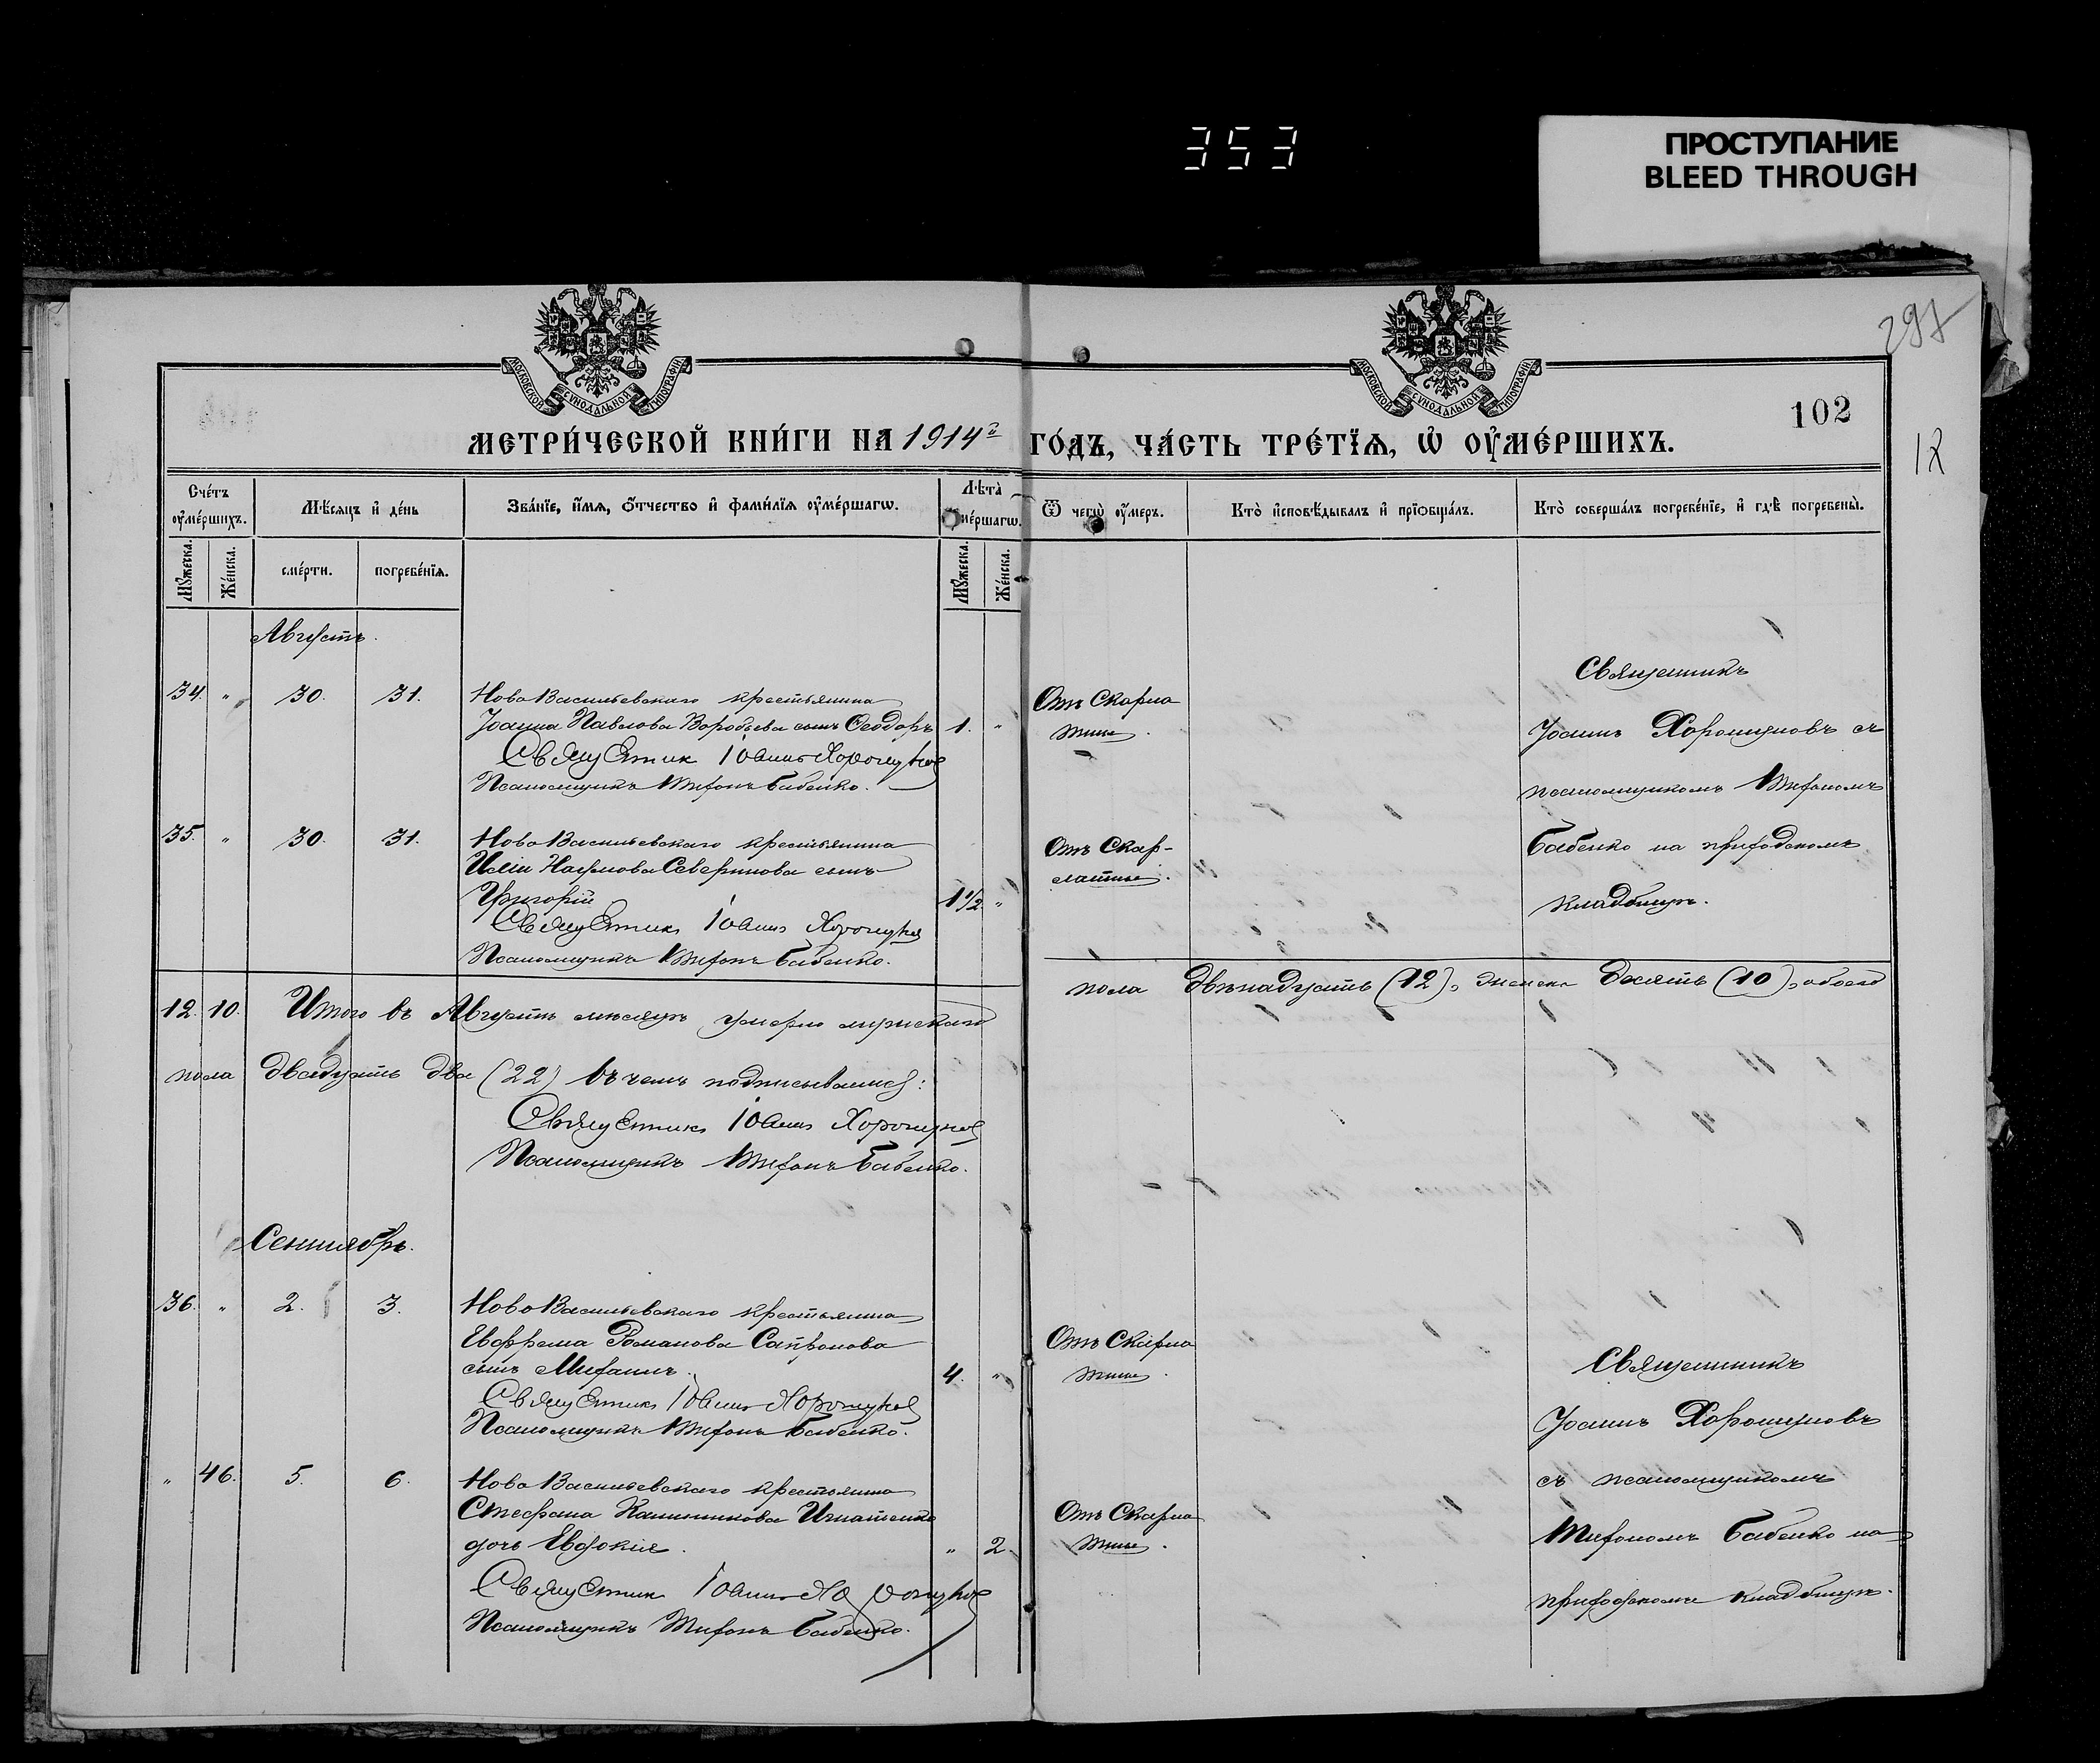 353
ПРОСТУПАНИЕ
BLEED THROUGH
297
МОСКОВСКОЙ СѴНОДАЛЬНОЙ ТИПОГРАФІИ
МОСКОВСКОЙ СѴНОДАЛЬНОЙ ТИПОГРАФІИ
102
МЕТРИ́ЧЕСКОЙ КНИ́ГИ НА 1914й ГО́ДЪ, ЧА́СТЬ ТРЕ́ТЇѦ, Ѡ҆ ОУ҆МЕ́РШИХЪ.
12
Сче́тъ оу҆ме́ршихъ.
Мѣ́сѧцъ и҆ де́нь
Зва́нїе, и҆́мѧ, ѻ҆́тчество и҆ фами́лїѧ оу҆ме́ршагѡ.
Лѣ́та
ме́ршагѡ.
Ѿ чегѡ̀ оу҆́меръ.
Кто̀ и҆сповѣ́дывалъ и҆ прїѡбща́лъ.
Кто̀ соверша́лъ погребе́нїе, и҆ гдѣ̀ погребены̀.
Мꙋ́жеска.
Же́нска.
сме́рти.
погребе́нїѧ.
Мꙋ́жеска.
Же́нска.
Августъ.
34. " 30. 31. НовоВасильевскаго крестьянина
Іоанна Павлова Воробьева сынъ Ѳеодоръ 1. "
Священник Іоаннъ Хорошунов
Псаломщикъ Тихонъ Бабенко.
Отъ Скарла
тины.
Священникъ
Іоаннъ Хорошуновъ съ
псаломщикомъ Тихономъ
Бабенко на приходскомъ
кладбищѣ.
35. " 30. 31. НовоВасильевскаго крестьянина
Иліи Наумова Северинова сынъ
Григорій 1½ "
Священникъ Іоаннъ Хорошунов
Псаломщикъ Тихонъ Бабенко.
Отъ Скар-
латины.
12. 10. Итого въ Августѣ мѣсяцѣ умерло мужескаго
пола двѣнадцать (12), женска десять (10), обоего
пола двадцать два (22) въ чемъ подписываемся:
Священникъ Іоаннъ Хорошунов
Псаломщикъ Тихонъ Бабенко.
Сентябрь.
36. " 2. 3. НовоВасильевскаго крестьянина
Евфрема Романова Сапронова
сынъ Михаилъ. 4. "
Священникъ Іоаннъ Хорошунов
Псаломщикъ Тихонъ Бабенко.
Отъ Скарла
тины.
Священникъ
Іоаннъ Хорошуновъ
съ псаломщикомъ
Тихономъ Бабенко на
приходскомъ кладбищѣ.
" 46. 5. 6. НовоВасильевскаго крестьянина
Стефана Калинникова Игнатенко
дочь Евдокія. " 2.
Священник Іоаннъ Хорошунов
Псаломщикъ Тихонъ Бабенко.
Отъ Скарла
тины.